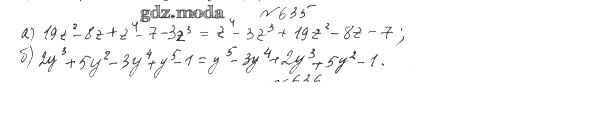 gdz.moda
№635
а) 19z² - 8z + z⁴ - 7 - 3z³ = z⁴ - 3z³ + 19z² - 8z - 7;
б) 2y³ + 5y² - 3y⁴ + y⁵ - 1 = y⁵ - 3y⁴ + 2y³ + 5y² - 1.